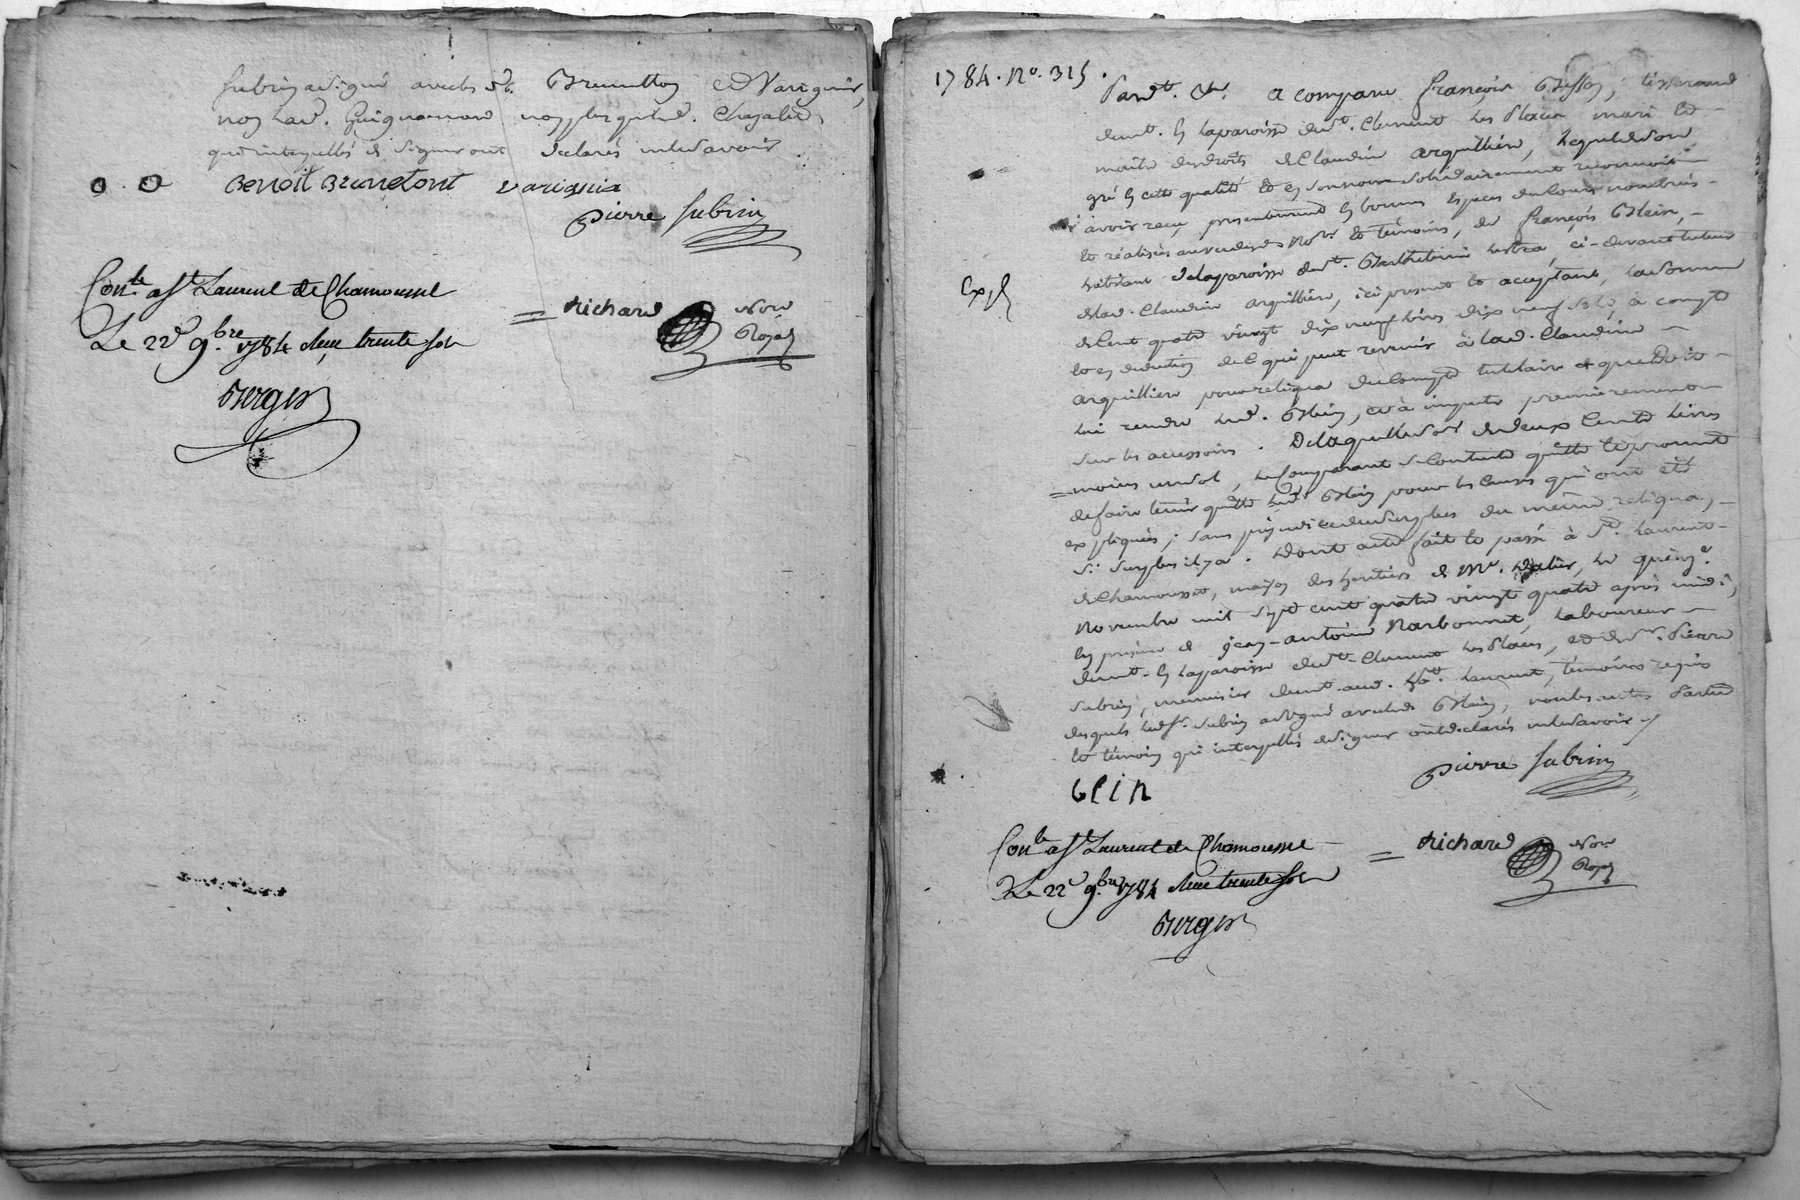 Subrin a signé avec les Sr. Brunetton et Varignier,
non lad. Guignamard non plus que led. Chazalet,
qui interpellés de signer ont declarés ne le savoir
Benoit Brunetont varignié
pierre subrin
Conlé a St Laurent de Chamousset
Le 22 9.bre 1784 Reçu trente sols
= Richard Nore Royal
Berger
1784. No. 315.
Pardt. &a. a comparu françois Besson, tisserand
demt. en la paroisse de St. Clement les Places mari et
maitre des droits de Claudine arquilliere, lequel de son
gré en cette qualité et en son nom solidairement reconnoit
avoir reçu presentement en bonnes especes du cours nombrées
et réalisées au vu desds. Nores et témoins, de françois Blein,
habitant de la paroisse de St. Barthelemi lestra, ci-devant tuteur
de lad. Claudine arquilliere, ici present et acceptant, la somme
de Cent quatre vingt dix neuf livres dix neuf sols, à compte
et en deduction de ce qui peut revenir à lad. Claudine
arquilliere pour reliqua du Compte tutelaire et que Doit
lui rendre led. Blein, et à imputer premierement
sur les accessoires. De laquelle somme de deux Cents livres
= moins un sol, le Comparant se Contente quitte et promet
de faire tenir quitte led. Blein pour les causes qui ont été
expliquées; sans prejudice du surplus du même reliqua,
si surplus il y a. Dont acte fait et passé à St. Laurent
de Chamousset, maison des heritiers de Mr. , le quinze
Novembre mil sept cent quatre vingt quatre après midi,
en presence de jean-antoine Narbonnet, laboureur
demt. en la paroisse de St. Clement les Places, et de Sr. Pierre
Subrin, menuisier demt. aud. St. Laurent, témoins requis
desquels led. Sr. Subrin a signé avec led. Blein, non les autres Partie
et témoin qui interpellés de signer ont declarés ne le savoir
Expé
pierre subrin
blin
Conlé a St Laurent de Chamousset
Le 22 9.bre 1784 Reçu trente sols
= Richard Nore Royal
Berger